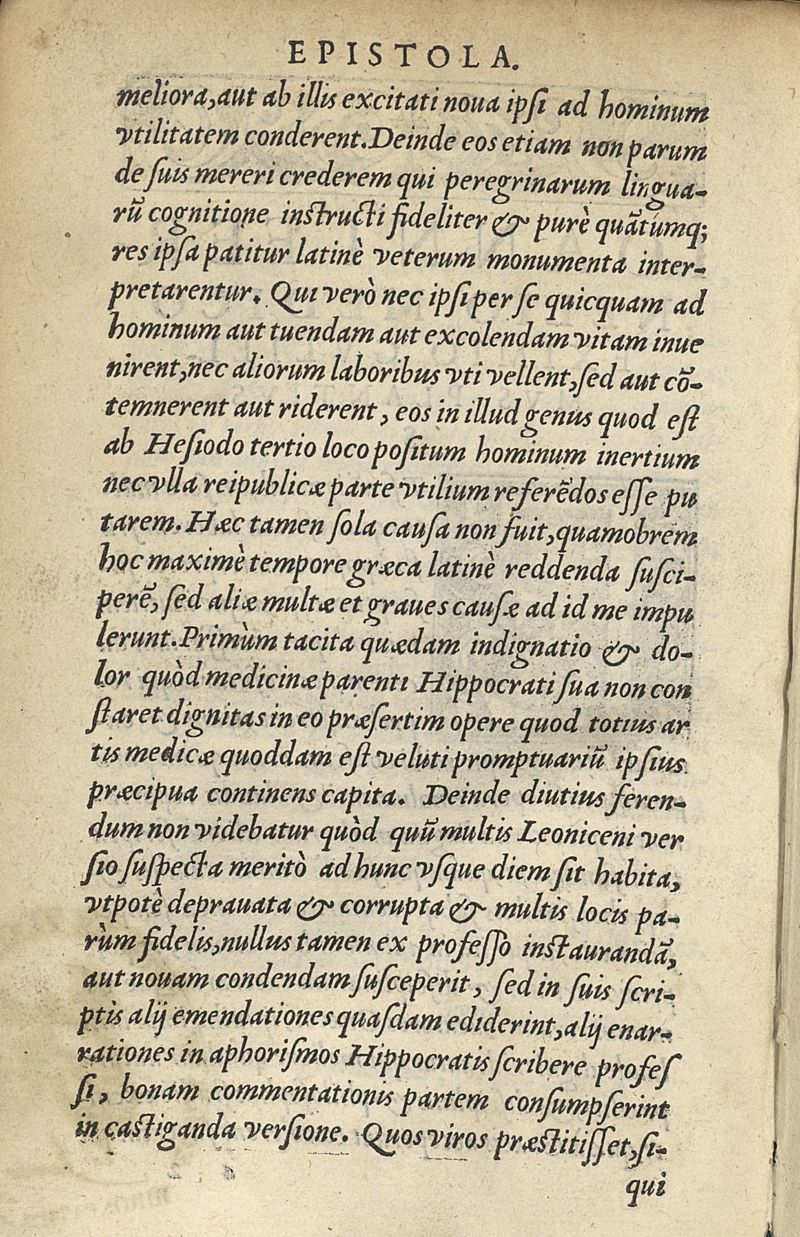 EPISTOLA.
meliora, aut ab illis excitati noua ipſi ad hominum
vtilitatem conderent. Deinde eos etiam non parum
de ſuis mereri crederem qui peregrinarum lingua-
rū cognitione inſtructi fideliter & purè quātumq;
res ipſa patitur latinè veterum monumenta inter-
pretarentur. Qui verò nec ipſi per ſe quicquam ad
hominum aut tuendam aut excolendam vitam inue
nirent, nec aliorum laboribus vti vellent, ſed aut cō-
temnerent aut riderent, eos in illud genus quod eſt
ab Heſiodo tertio loco poſitum hominum inertium
nec vlla reipublicæ parte vtilium referēdos eſſe pu
tarem. Hæc tamen ſola cauſa non fuit, quamobrem
hoc maximè tempore græca latinè reddenda ſuſci-
perē, ſed aliæ multæ et graues cauſæ ad id me impu
lerunt. Primùm tacita quædam indignatio & do-
lor quòd medicinæ parenti Hippocrati ſua non con
ſtaret dignitas in eo præſertim opere quod totius ar
tis medicæ quoddam eſt veluti promptuariū ipſius
præcipua continens capita. Deinde diutius feren-
dum non videbatur quòd quū multis Leoniceni ver
ſio ſuſpecta meritò ad hunc vſque diem ſit habita,
vtpotè deprauata & corrupta & multis locis pa-
rùm fidelis, nullus tamen ex profeſſo inſtaurandā,
aut nouam condendam ſuſceperit, ſed in ſuis ſcri-
ptis alij emendationes quaſdam ediderint, alij enar-
rationes in aphoriſmos Hippocratis ſcribere profeſ
ſi, bonam commentationis partem conſumpſerint
in caſtiganda verſione. Quos viros præſtitiſſet, ſi-
qui